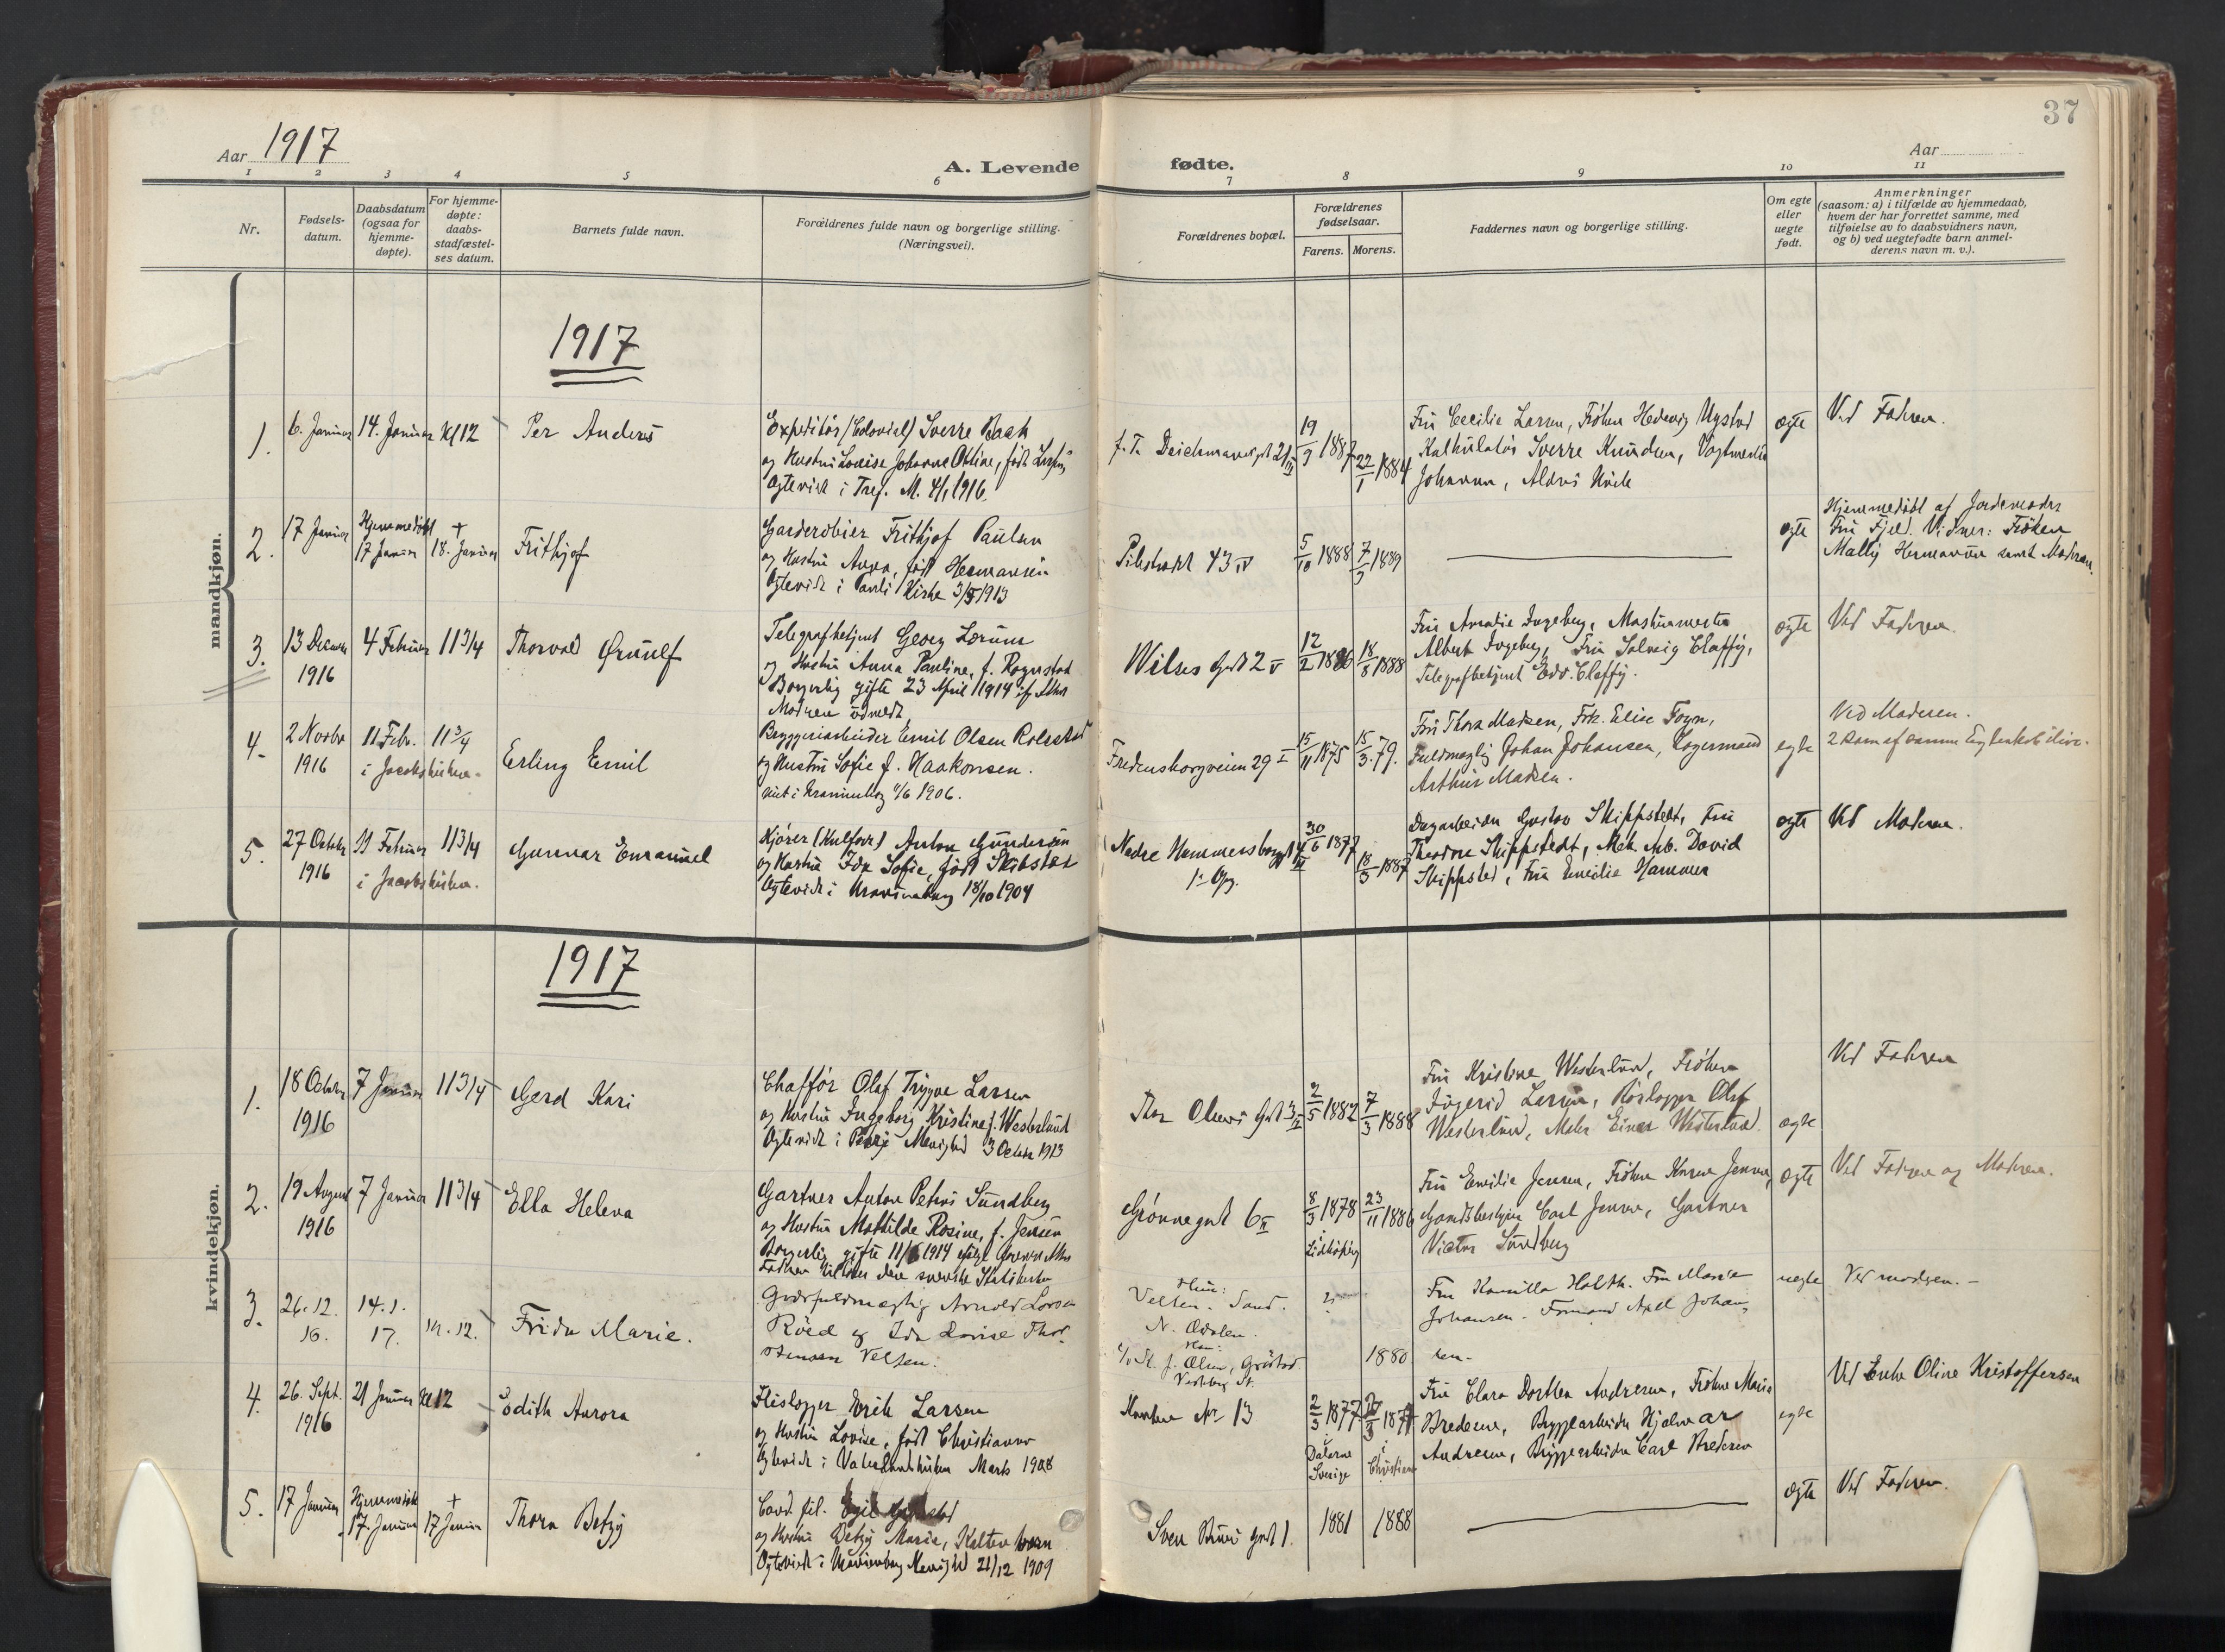 37
Aar 1917
A. Levende
fødte.
Aar
1 2 3 4 5 6 7 8 9 10 11
Nr.
Fødsels-
datum.
Daabsdatum
(ogsaa for
hjemme-
døpte).
For hjemme-
døpte:
daabs-
stadfæstel-
ses datum.
Barnets fulde navn.
Forældrenes fulde navn og borgerlige stilling.
(Næringsvei).
Forældrenes bopæl.
Forældrenes
fødselsaar.
Farens. Morens.
Faddernes navn og borgerlige stilling.
Om egte
eller
uegte
født.
Anmerkninger
(saasom: a) i tilfælde av hjemmedaab,
hvem der har forrettet samme, med
tilføielse av to daabsvidners navn,
og b) ved uegtefødte barn anmel-
derens navn m. v.).
mandkjøn.
1917
1.
6. Januar
14. Januar
Kl 12
Per Anders
Expeditør (Colonial) Sverre Bach
og Hustru Lovise Johanne Othine, født
Ægteviet i Tref. M. 4/1 1916.
f. T. Deichmansgt 21
19/9 1887
22/1 1884
Fru Cecilie Larsen, Frøken Hedevig Nystad
Kalkulatør Sverre Knudsen, Vogtmester
Johansen, Aldris
ægte
Ved Faderen.
2.
17 Januar
Hjemmedøbt
17 Januar
+
18. Januar
Frithjof
Garderobier Frithjof Paulsen
og Hustru Anna, født Hermansen
Ægteviet i Pauli Kirke 3/5 1913
Pilestrædet 43 IV
5/10 1888
7/9 1889
ægte
Hjemmedøbt af Jordemoder
Fru Fjeld. Vidner: Frøken
Mally Hermansen samt Moderen.
3.
13 Decembr
1916
4 Februar
11 3/4
Thorvald Ørnulf
Telegrafbetjent Georg Lorum
og Hustru Anna Pauline, f. Rognstad
Borgerlig gifte 23 April 1914 if. Attest
Moderen udmeldt
Wilses Gad 2 V
12/2 1886
18/8 1888
Fru Amalie Ingeberg, Maskinmester
Albert Ingeberg, Fru Solveig Claffy,
Telegrafbetjent Edv. Claffy.
ægte
Ved Faderen.
4.
2 Novbr
1916
11 Febr.
i Jacobskirken.
11 3/4
Erling Emil
Bryggeriarbeider Emil Olsen Rolsstad
og Hustru Sofie f. Haakonsen.
viet i Krannenborg 1/6 1906.
Fredensborgveien 29 I
15/11 1875
15/3. 79.
Fru Thora Madsen, Frk. Elise Foyn,
Fuldmægtig Johan Johansen, Lagermand
Arthur Madsen.
egte
Ved Moderen.
2 Barn af samme Egteskab ilive.
5.
27 Octobr
1916
11 Februar
i Jacobskirken.
11 3/4
Gunnar Emanuel
Kjører (Kulforr) Anton Gundersen
og Hustru Ida Sofie, født Skibsted
Ægteviet i 18/10 1904
Nedre Hammersborggt
1. Opg.
30/6 1877
18/3 1887
Dagarbeider Gustav Skippstedt, Fru
Theodore Skippstedt, Mek. Arb. David
Skippsted, Fru Emilie Hammer
ægte
Ved Moderen.
kvindekjøn.
1917
1.
18 Octobr
1916
7 Januar
11 3/4
Gerd Kari
Chaffør Olaf Trygve Larsen
og Hustru Ingeborg Kristine f. Westerlund
Ægteviet i Menighed 3 October 1913
Thor Olsens Gad 3
2/5 1882
7/3 1888
Fru Kristine Westerlund, Frøken
Ingerid Larsen, Rørlægger Olaf
Westerlund, Maler Einar Westerlund.
ægte
Ved Faderen
2.
19 August
1916
7 Januar
11 3/4
Ella Helena
Gartner Anton Petrus Sundberg
og Hustru Mathilde Rosine, f. Jensen
Borgerlig gifte 11/6 1914 ifølge forevist Attest
Faderen tilhører den svenske Statskirke
Grønnegad 6 II
8/3 1878
i Lidköping
23/11 1886
Fru Emilie Jensen, Frøken Karen Jensen,
Carl Jensen, Gartner
Victor Sundberg
ægte
Ved Faderen og Moderen.
3.
26.12.
16.
14.1.
17.
kl. 12.
Frida Marie.
Grosfuldmægtig Arnold Larsen
Røed og Ida Lovise Thor-
stensen Velten.
Hun:
Velten. Sand.
N. Odalen.
Han:
Vestby St.
1880
Fru Kamilla Holth. Fru Marie
Johansen. Formand Axel Johan-
sen.
uegte
Ved moderen.
4.
26. Sept.
1916
21 Januar
Kl 12
Edith Aurora
Flislægger Erik Larsen
og Hustru Lovise, født Christianne
Ægteviet i Vaterlandskirken Marts 1908
No 13
2/3 1877
i Dalarne
Sverige
1877
i Christiania
Fru Clara Dorthea Andresen, Frøken Marie
Bredesen, Bryggearbeider Hjalmar
Andresen, Bryggearbeider Carl Bredesen
egte
Ved Enke Oline Kristoffersen
5.
17 Januar
Hjemmedøbt
17. Januar
+
17 Januar
Thora Betzy
Cand. fil.
og Hustru Betzy Marie, Kaltenborn
Ægteviet i Menighed 21/12 1909
Sven Bruns Gad 1.
1881
1888
ægte
Ved Faderen.